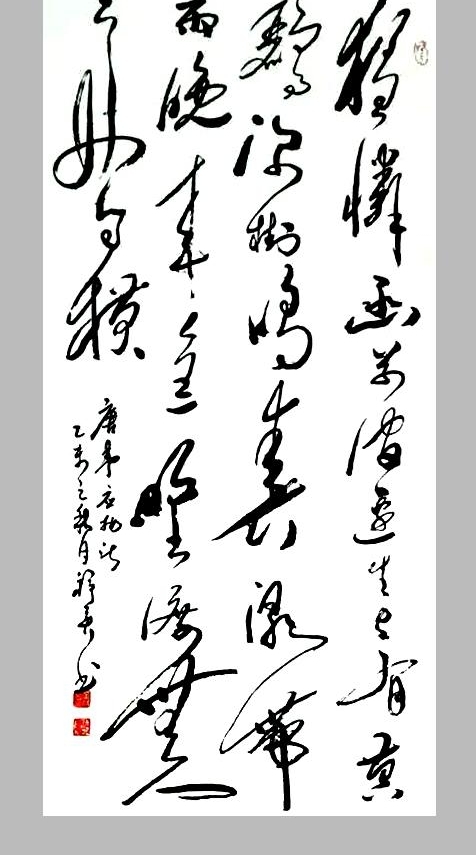 獨憐幽草澗邊生上有黄
鸝深樹鳴春潮帶
雨晚來急野渡無人
舟自横
唐韋應物詩
乙未之秋月 书